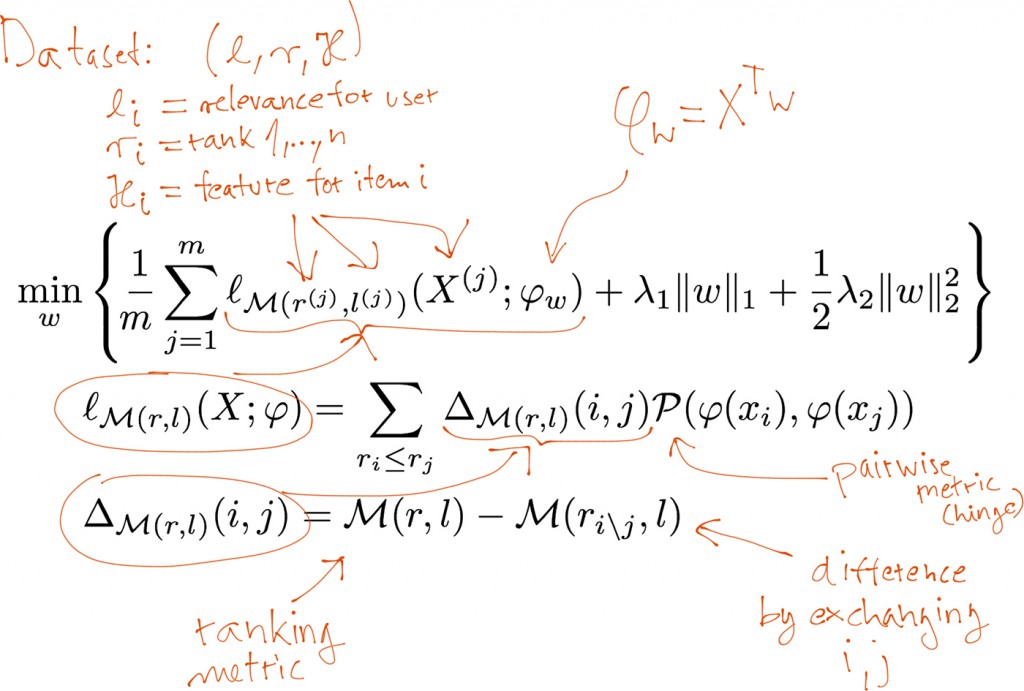 Dataset: (l, r, x)
l_i = relevance for user
r_i = rank 1,...,n
x_i = feature for item i
φ_w = X^T w
min_w { 1/m ∑_{j=1}^{m} ℓ_{M(r^{(j)}, l^{(j)})}(X^{(j)}; φ_w) + λ_1‖w‖_1 + 1/2 λ_2‖w‖_2^2 }
ℓ_{M(r,l)}(X; φ) = ∑_{r_i ≤ r_j} Δ_{M(r,l)}(i, j) P(φ(x_i), φ(x_j))
pairwise
metric
(hinge)
Δ_{M(r,l)}(i, j) = M(r, l) − M(r_{i\j}, l)
ranking
metric
difference
by exchanging
i, j